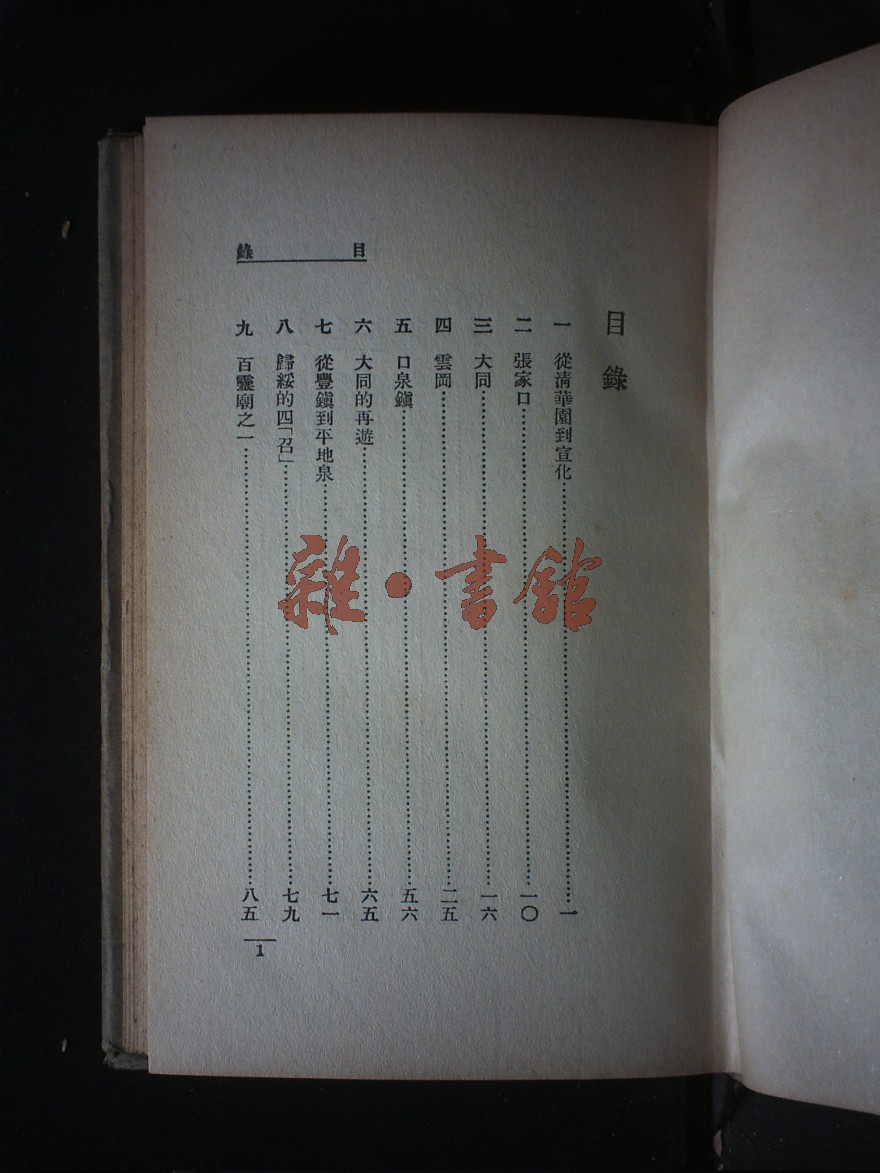 目錄
目錄
一 從清華園到宣化……一
二 張家口……一〇
三 大同……一六
四 雲岡……二五
五 口泉鎭……五六
六 大同的再遊……六五
七 從豐鎭到平地泉……七一
八 歸綏的四「召」……七九
九 百靈廟之一……八五
1
雜·書館